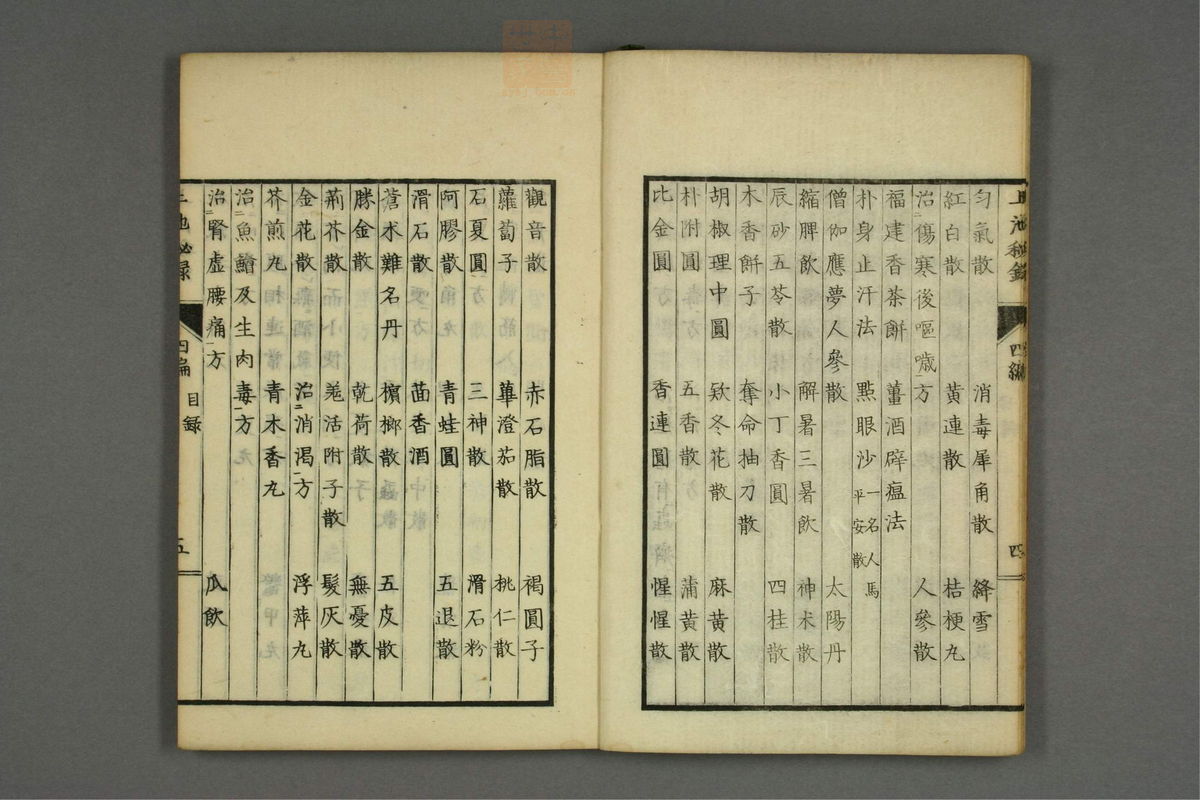 上池秘錄 四編 四
匀氣散 消毒犀角散 絳雪
紅白散 黃連散 桔梗丸
治傷寒後嘔噦方 人參散
福建香茶餅 薑酒辟瘟法
朴身止汗法 點眼沙 一名人馬平安散
僧伽應夢人參散 太陽丹
縮脾飲 解暑三暑飲 神朮散
辰砂五苓散 小丁香圓 四桂散
木香餅子 奪命抽刀散
胡椒理中圓 欵冬花散 麻黃散
朴附圓 五香散 蒲黃散
比金圓 香連圓 惺惺散
觀音散 赤石脂散 褐圓子
蘿蔔子 蓽澄茄散 桃仁散
石夏圓 三神散 滑石粉
阿膠散 青蛙圓 五退散
滑石散 茴香酒
蒼朮難名丹 檳榔散 五皮散
勝金散 乾荷散 無憂散
荊芥散 羗活附子散 髮灰散
金花散 治消渴方 浮萍丸
芥煎丸 青木香丸
治魚鱠及生肉毒方
治腎虛腰痛方 瓜飲
上池秘录 四編 目録 五